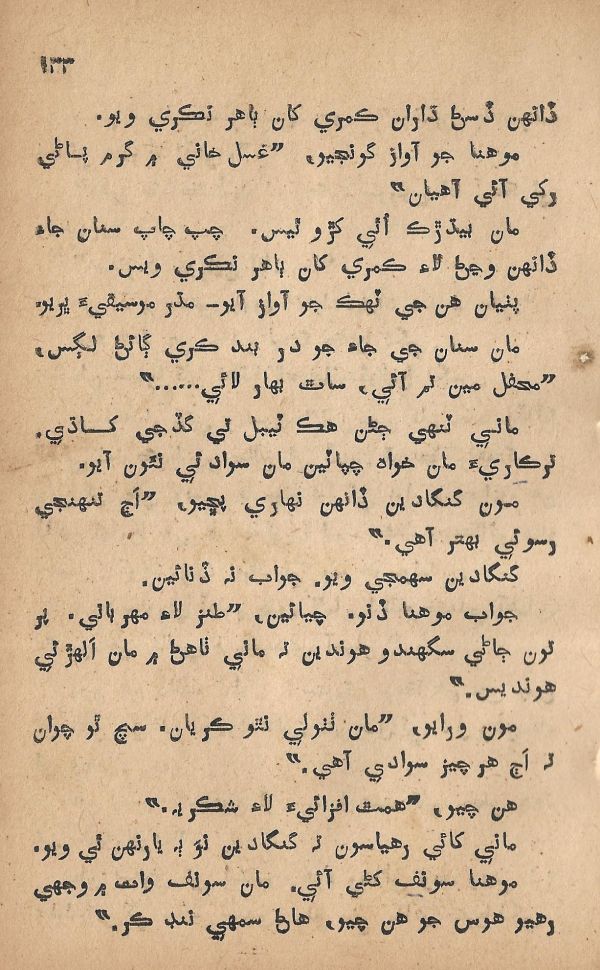 ۱۳۳
ڏانهن ڏسڻ ڌاران ڪمري کان ٻاهر نڪري ويو.
موهنا جو آواز گونجيو، ”غسل خاني ۾ گرم پاڻي
رکي آئي آهيان“
مان بيدڙڪ اُٿي کڙو ٿيس. چپ چاپ سنان جاءِ
ڏانهن وڃڻ لاءِ ڪمري کان ٻاهر نڪري ويس.
پٺيان هن جي ٽهڪ جو آواز آيو۔ مڌر موسيقيءَ ڀريو.
مان سنان جي جاءِ جو در بند ڪري ڳائڻ لڳس،
”محفل مين تم آئي، ساٿ بهار لائي......“
ماني ٽنهي ڄڻن هڪ ٽيبل تي گڏجي کاڌي.
ترڪاريءَ مان خواه چپاٽين مان سواد ئي نٿون آيو.
مون گنگادين ڏانهن نهاري پڇيو، ”اَڄ تنهنجي
رسوئي بهتر آهي.“
گنگادين سهمجي ويو. جواب نہ ڏنائين.
جواب موهنا ڏنو. چيائين، ”طنز لاءِ مهرباني. پر
تون ڄاڻي سگهندو هوندين تہ ماني ٺاهڻ ۾ مان اَلهڙ ئي
هونديس.“
مون ورايو، ”مان ٺٺولي نٿو ڪريان. سچ ٿو چوان
تہ اَڄ هر چيز سوادي آهي.“
هن چيو، ”همت افزائيءَ لاءِ شڪريہ.“
ماني کائي رهياسون تہ گنگادين نؤ ٻہ يارنهن ٿي ويو.
موهنا سونف کڻي آئي. مان سونف وات ۾ وجهي
رهيو هوس جو هن چيو، هاڻ سمهي ننڊ ڪر.“